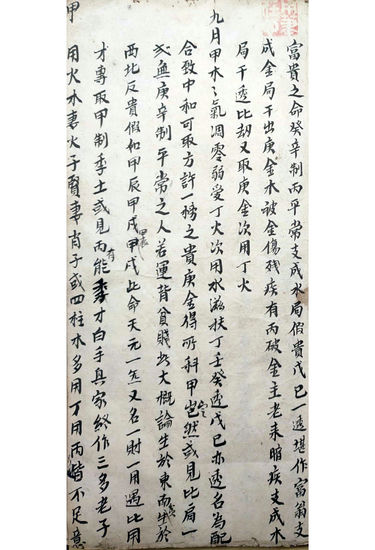 富貴之命癸辛制丙平常支成水局假貴戊己一透堪作富翁支
成金局干出庚金水被金傷殘疾有丙破金主老来暗疾支成木
局干透比劫又取庚金次用丁火
九月甲木木氣凋零弱愛丁火次用水滋扶丁壬癸透戊己亦透名為配
合致中和可取方許一榜之貴庚金得所科甲定然或見比肩一
式無庚辛制平常之人若運背貧賤此大概論生於東南生於
西北反貴假如甲辰甲戌甲辰甲戌此命天元一炁又名一財一用遇比用
才專取甲制季土或見丙能有才白手具家終作三多老子
甲 用火木妻火子賢妻肖子或四柱木多用丁用丙皆不足意